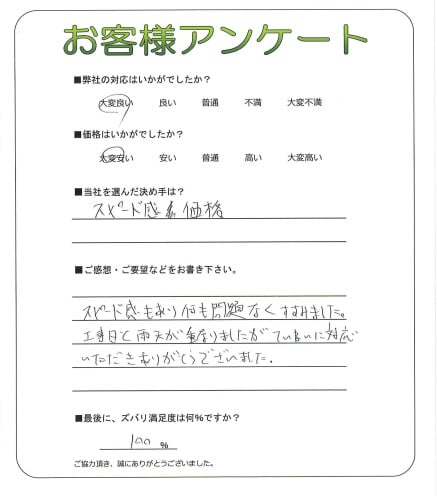 お客様アンケート
■弊社の対応はいかがでしたか？
大変良い 良い 普通 不満 大変不満
■価格はいかがでしたか？
大変安い 安い 普通 高い 大変高い
■当社を選んだ決め手は？
スピード感 価格
■ご感想・ご要望などをお書き下さい。
スピード感もあり何も問題なくすすみました。
工事日と雨天が重なりましたがていねいに対応
いただきありがとうございました.
■最後に、ズバリ満足度は何%ですか？
100 %
ご協力頂き、誠にありがとうございました。